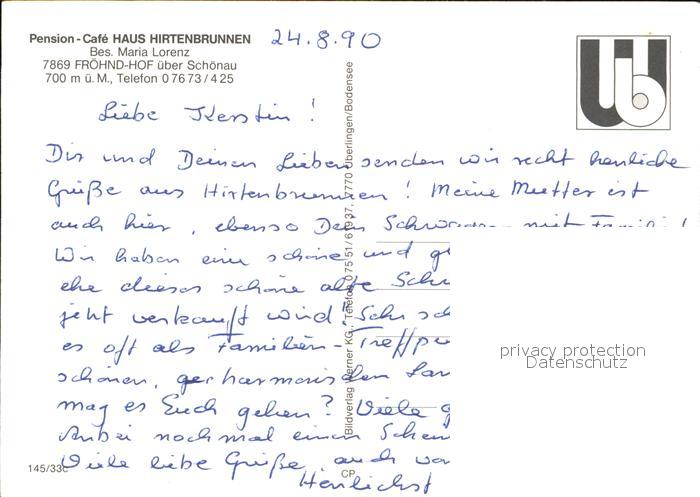 Pension-Café HAUS HIRTENBRUNNEN
Bes. Maria Lorenz
7869 FRÖHND-HOF über Schönau
700 m ü. M., Telefon 0 76 73 / 4 25
24.8.90
Liebe Kerstin!
Dir und Deinen Lieben senden wir recht herzliche
Grüße aus Hirtenbrunnen! Meine Mutter ist
auch hier, ebenso Dein mit Familie!
Wir haben eine schöne und
ehe dieses schöne alte
jetzt verkauft wird! Sehr
es oft als Familien-
schönen, harmonischen
mag es Euch gehen? Viele
Anbei nochmal einen
Viele liebe Grüße, auch
Herzlichst
145/33c
CP
Telefon 0 75 51 / 77 70 Überlingen/Bodensee
Bildverlag
privacy protection
Datenschutz